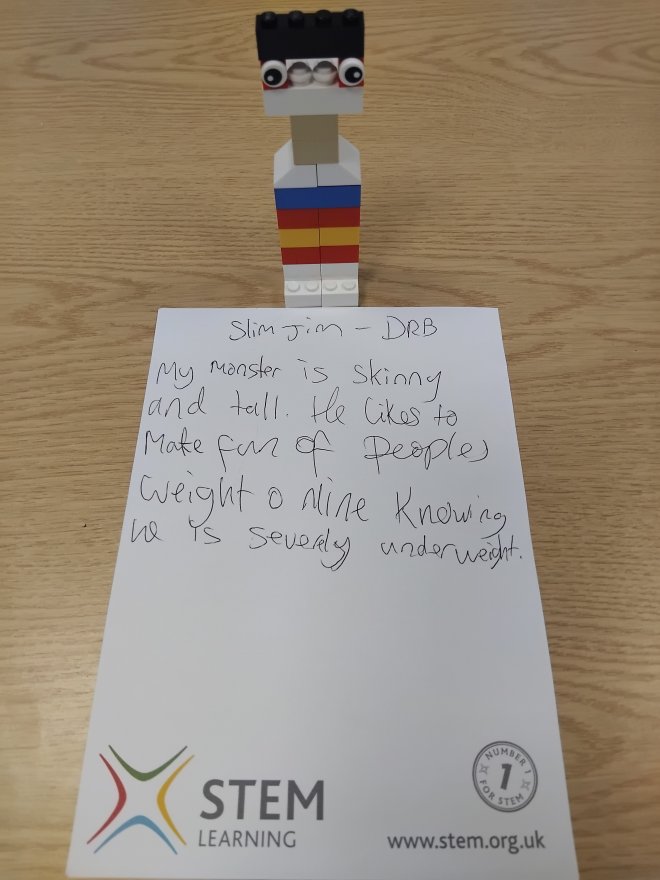 Slim Jim - DRB
My Monster is skinny
and tall. He likes to
Make fun of peoples
weight online knowing
he is severely underweight.
NUMBER 1
1
FOR STEM
STEM
LEARNING
www.stem.org.uk